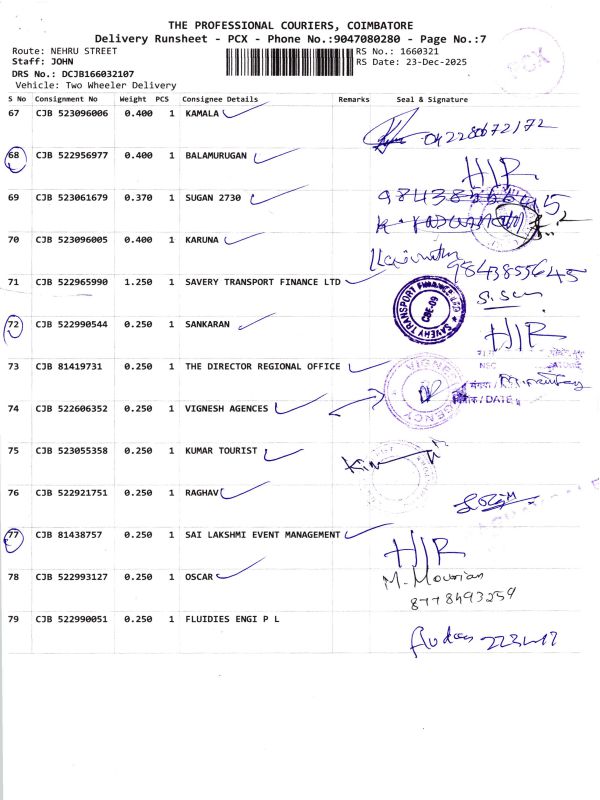 THE PROFESSIONAL COURIERS, COIMBATORE
Delivery Runsheet - PCX - Phone No.:9047080280 - Page No.:7
Route: NEHRU STREET RS No.: 1660321
Staff: JOHN RS Date: 23-Dec-2025
DRS No.: DCJB166032107
Vehicle: Two Wheeler Delivery
PCX
S No Consignment No Weight PCS Consignee Details Remarks Seal & Signature
67 CJB 523096006 0.400 1 KAMALA
04228672172
68 CJB 522956977 0.400 1 BALAMURUGAN H/R
69 CJB 523061679 0.370 1 SUGAN 2730
70 CJB 523096005 0.400 1 KARUNA
9843855645
71 CJB 522965990 1.250 1 SAVERY TRANSPORT FINANCE LTD
SAVERY TRANSPORT FINANCE LTD CBE-09
72 CJB 522990544 0.250 1 SANKARAN H/R
73 CJB 81419731 0.250 1 THE DIRECTOR REGIONAL OFFICE
/ DATE
74 CJB 522606352 0.250 1 VIGNESH AGENCES
75 CJB 523055358 0.250 1 KUMAR TOURIST
76 CJB 522921751 0.250 1 RAGHAV
77 CJB 81438757 0.250 1 SAI LAKSHMI EVENT MANAGEMENT H/R
78 CJB 522993127 0.250 1 OSCAR
8778493259
79 CJB 522990051 0.250 1 FLUIDIES ENGI P L